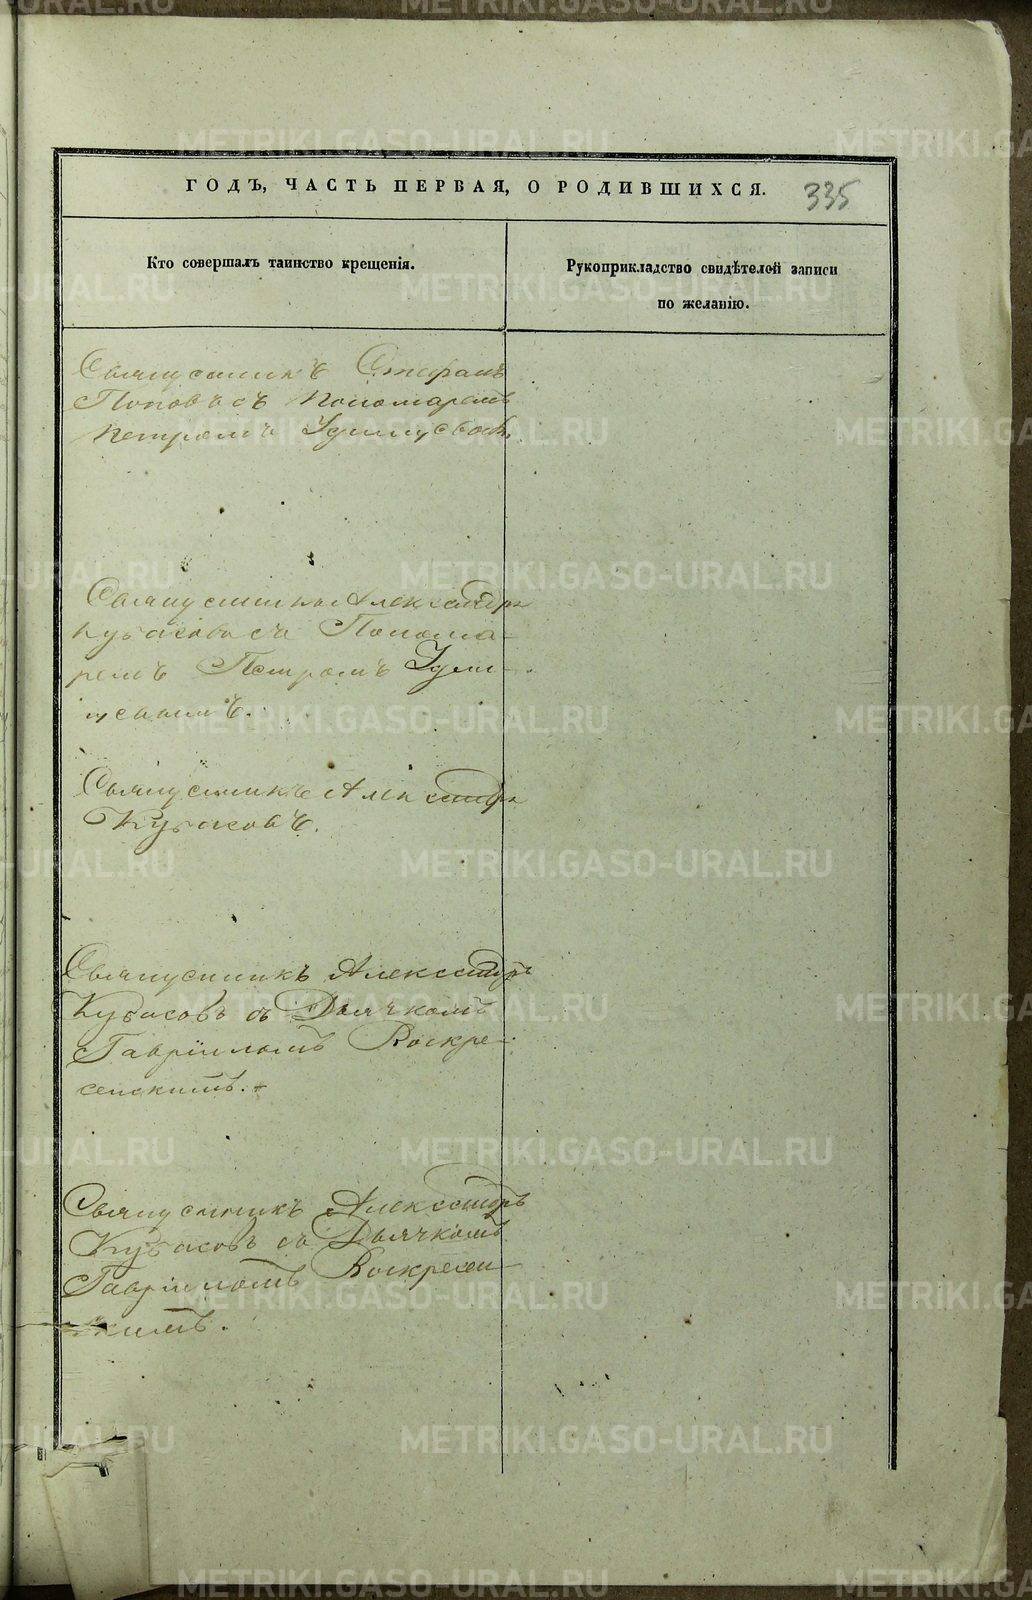 ГОДЪ, ЧАСТЬ ПЕРВАЯ, О РОДИВШИХСЯ.
335
Кто совершалъ таинство крещенія.
Рукоприкладство свидѣтелей записи
по желанію.
Священникъ Стефанъ
Поповъ съ Пономаремъ
Петромъ
Священникъ Александръ
Кубасовъ съ Понома-
ремъ Петромъ
Священникъ Александръ
Кубасовъ.
Священникъ Александръ
Кубасовъ съ Дьячкомъ
Гавріиломъ Воскре-
сенскимъ.
Священникъ Александръ
Кубасовъ съ Дьячкомъ
Гавріиломъ Воскресен-
скимъ.
METRIKI.GASO-URAL.RU